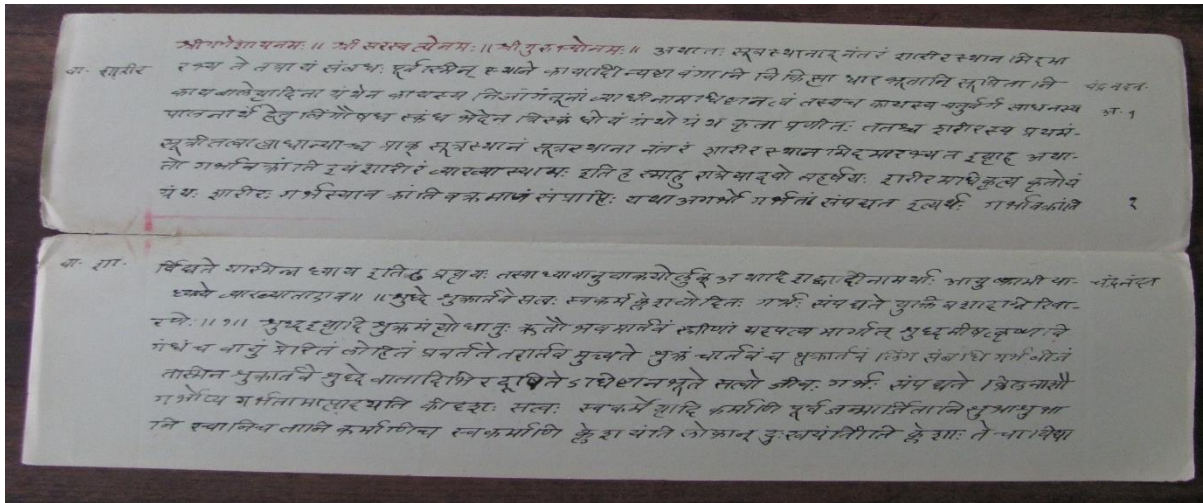 श्रीगणेशायनमः ॥ श्रीसरस्वत्येनमः ॥ श्रीगुरुभ्योनमः ॥ अथातः सूत्रस्थानाद् नंतरं शारीरस्थानमिदमा
वा. शारीर
रभ्यते तत्रायं संबंधः पूर्वस्मिन् स्थाने कायादीन्यष्टावंगानि चिकित्साधारभूतानि सूचितानि
चंद्रनंदन
कायबालेत्यादिना ग्रंथेन कायस्य निजागंतूनां व्याधीनामधिष्ठानत्वं तस्यच कायस्य चतुर्वर्ग साधनस्य
अ. १
पालनार्थं हेतुलिंगौषध स्कंध भेदेन त्रिस्कंधोयं ग्रंथो ग्रंथ कृता प्रणीतः ततश्च शरीरस्य प्रथमं
सूत्रस्थानं सूत्रस्थाना नंतरं शारीरस्थानमिदमारभ्यत इत्याह अथा-
तो गर्भावक्रांतिं शारीरं व्याख्यास्यामः इतिह स्माहु रात्रेयादयो महर्षयः शारीरमधिकृत्य कृतोयं
ग्रंथः शारीरः गर्भस्याव क्रांति संप्राप्तिः यथा अगर्भो गर्भतां संपद्यत इत्यर्थः गर्भावक्रांति
१
वा. शा.
र्विद्यते यस्मिन्नध्याय इति अध्यायानुवाकयोर्लुक्
चंद्रनंदन
ध्याये व्याख्याता एव ॥ ॥ शुद्धे शुक्रार्तवे सत्वः स्वकर्मक्लेशचोदितः गर्भः संपद्यते युक्तिवशादग्निरिवा-
रणौ ॥१॥ शुद्धइत्यादि शुक्रमंत्योधातुः ऋतौ भवमार्तवं स्त्रीणां यदपत्य मार्गात् कृष्णं वि
गंधं च वायु प्रेरितं लोहितं प्रवर्तते तदार्तव मुच्यते शुक्रं चार्तवं च शुक्रार्तवं लिंग संबंधि गर्भ बीजं
तस्मिन शुक्रार्तवे शुद्धे वातादिभिरदूषितेऽधिष्ठानभूते सत्वो जीवः गर्भः संपद्यते
गर्भोप्य गर्भतामासादयति कीदृशः सत्वः स्वकर्मेत्यादि कर्माणि पूर्व जन्मार्जितानि शुभाशुभा
नि स्वानिचतानि कर्माणिच स्वकर्माणि क्लेशयंति लोकान् दुःखयंतीति क्लेशाः ते चाविद्या